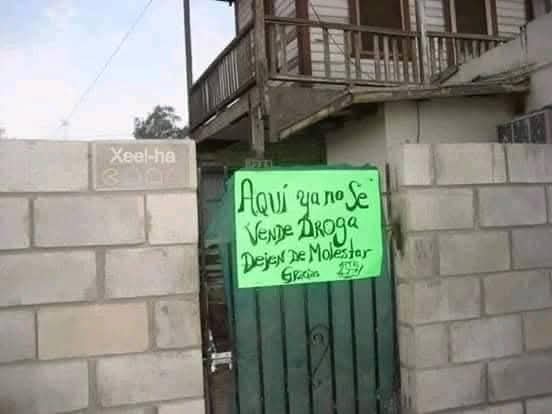 Xeel-ha
AQUÍ ya no Se
VENDE DROGA
DEJEN DE MOLESTAR
GRACIAS